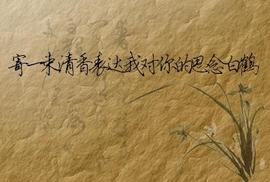 寄一束清香表达我对你的思念白鹤